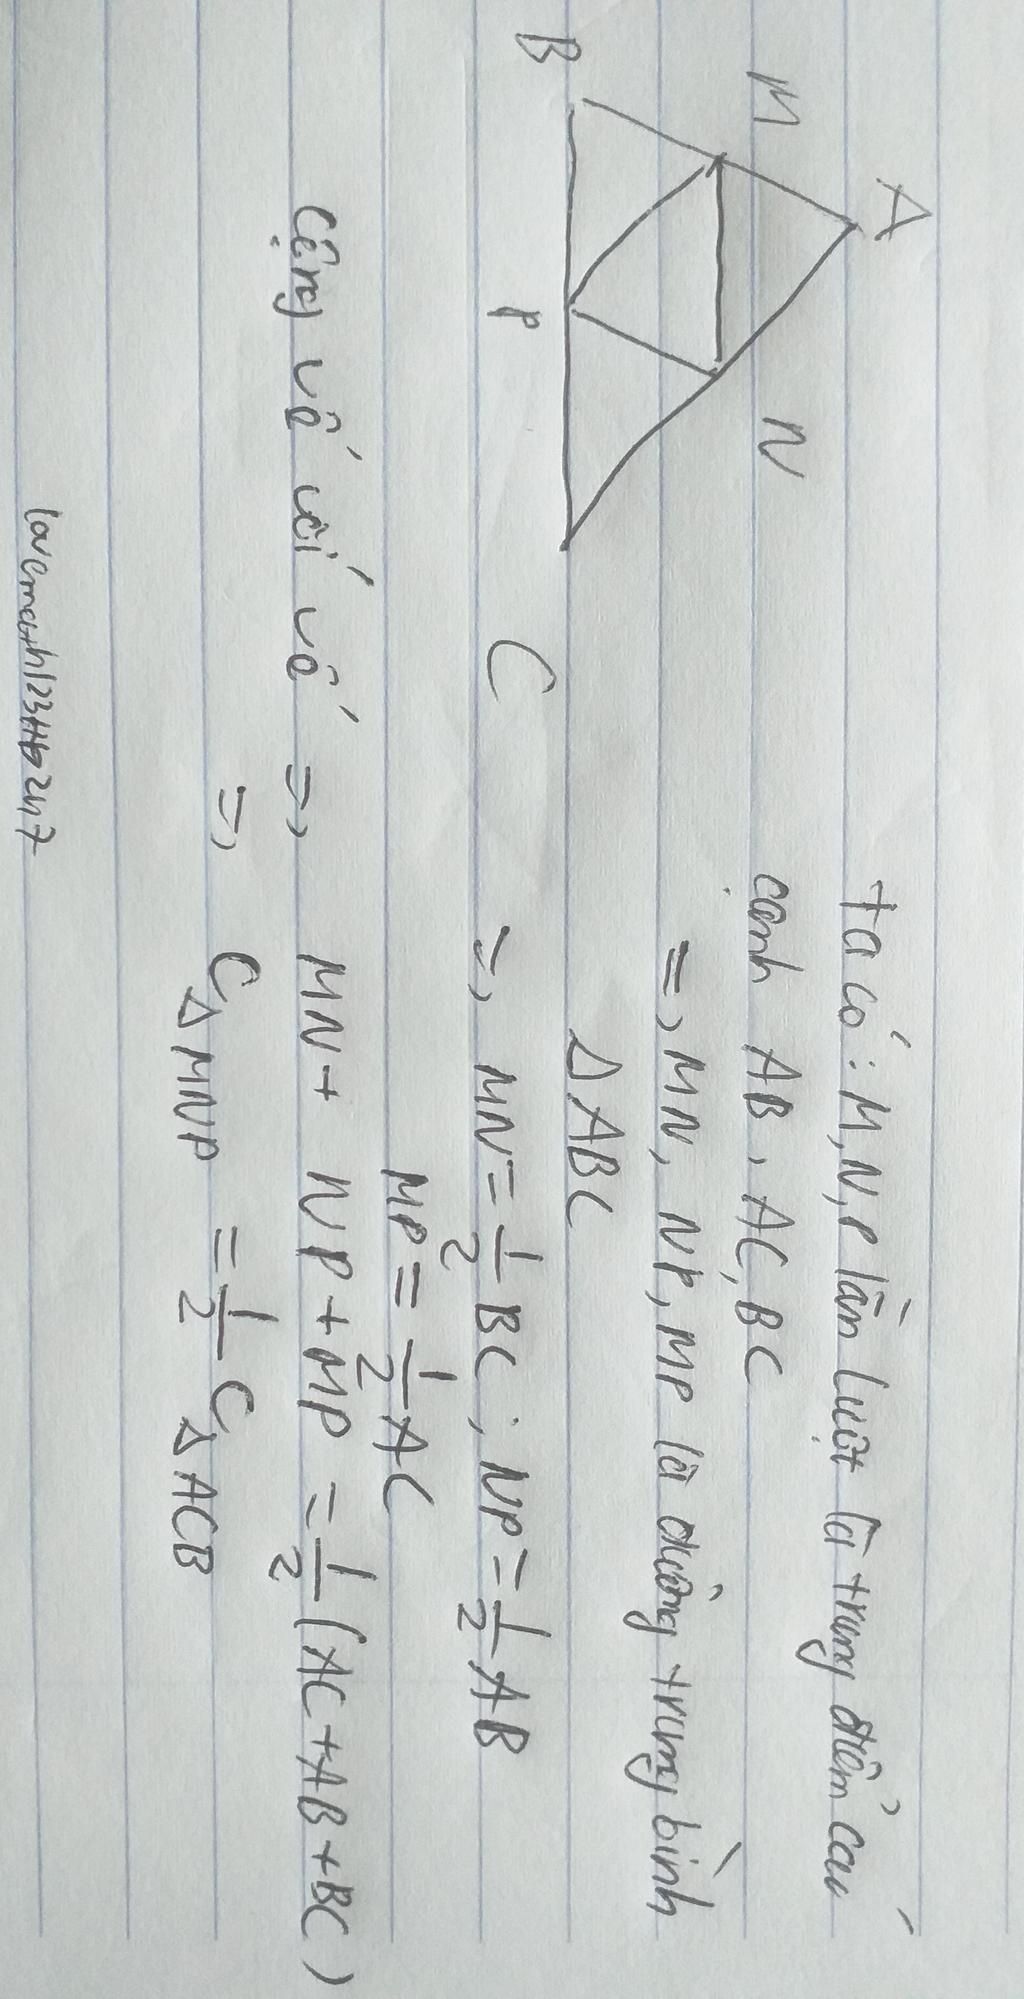 A
M
N
B
P
C
Ta có: M, N, P lần lượt là trung điểm các
cạnh AB, AC, BC
=> MN, NP, MP là đường trung bình
Δ ABC
=> MN = 1/2 BC ; NP = 1/2 AB
MP = 1/2 AC
Cộng vế với vế => MN + NP + MP = 1/2 (AC + AB + BC)
=> C Δ MNP = 1/2 C Δ ACB